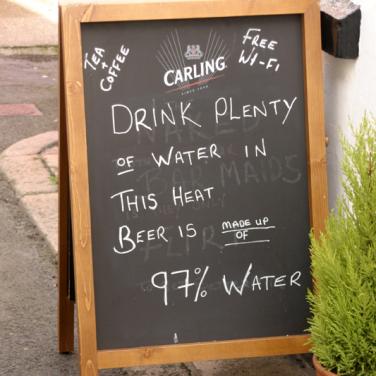 TEA + COFFEE
FREE WI-FI
CARLING
DRINK PLENTY
OF WATER IN
THIS HEAT
BEER IS MADE UP OF
97% WATER